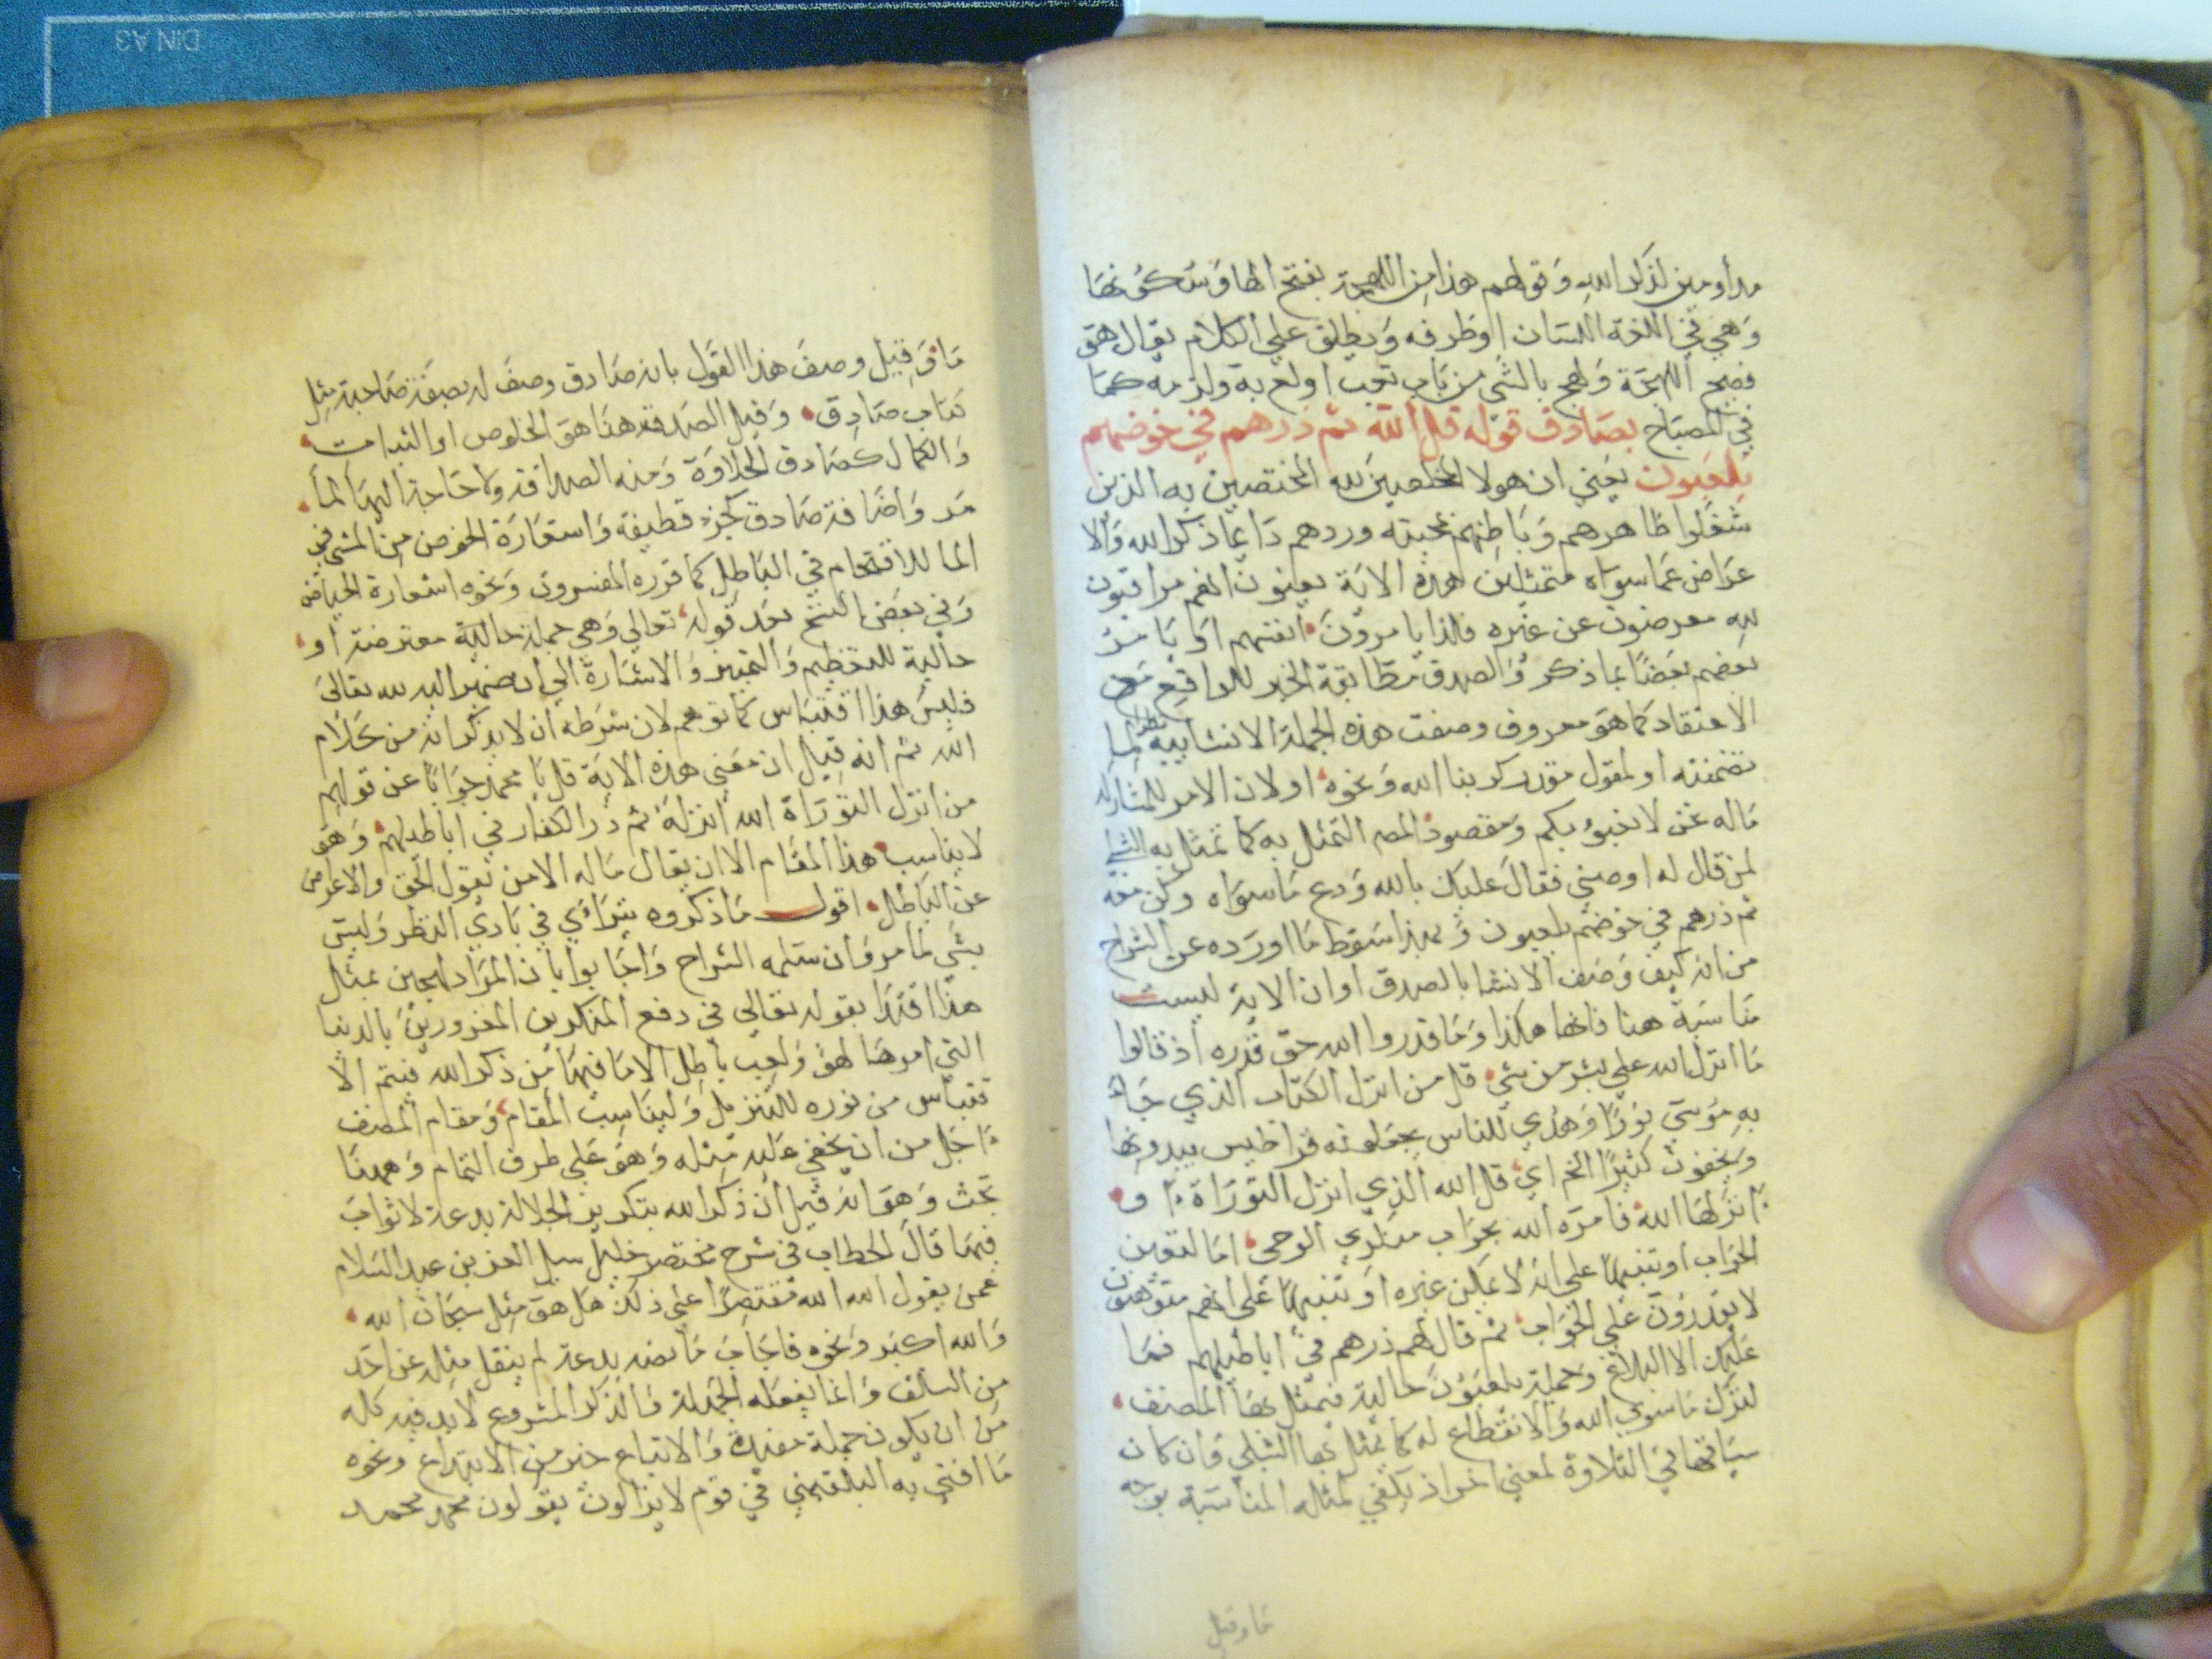 مداومين لذكر الله وقولهم هذا من اللهجة بفتح الها وسكونها
وهي في اللغة اللسان او طرفه ويطلق علي الكلام يقال هو
فصيح اللهجة ولهج بالشي من باب تعب اولع به ولزمه كما
في المصباح بصادق قوله قل الله ثم ذرهم في خوضهم
يلعبون يعني ان هولا المخلصين لله المختصين به الذين
شغلوا ظاهرهم وباطنهم بمحبته وردهم دايما ذكر الله والا
عراض عما سواه متمثلين بهذه الاية يعنون انهم مراقبون
لله معرضون عن غيره فلذا يامرون انفسهم او يامر
بعضهم بعضا بما ذكر والصدق مطابقة الخبر للواقع مع
الاعتقاد كما هو معروف وصفت هذه الجملة الانشاييه نظرا لما
تضمنته او لمقول مقدر كربنا الله ونحوه او لان الامر للمشار له
ماله نحن لا نخبؤ بكم ومقصود المص التمثل به كما تمثل به الشبلي
لمن قال له اوصني فقال عليك بالله ودع ما سواه وكن معه
ثم ذرهم في خوضهم يلعبون وبهذا سقط ما اورده عن الشراح
من انه كيف وصف الانشا بالصدق او ان الاية ليست
مناسبة هنا فانها هكذا وما قدروا الله حق قدره اذ قالوا
ما انزل الله علي بشر من شي قل من انزل الكتاب الذي جاء
به موسي نورا وهدي للناس يجعلونه قراطيس يبدونها
ويخفون كثيرا الخ اي قل الله الذي انزل التوراة او
انزلها الله فامره الله بجواب منكري الوحي اما لتعين
الجواب او تنبيها علي انه لا يمكن غيره او تنبيها علي انهم مبهوتون
لا يقدرون علي الجواب ثم قال لهم ذرهم في اباطيلهم فما
عليك الا البلاغ وجملة يلعبون حالية فيمثل بها المصنف
لترك ما سوي الله والانقطاع له كما تمثل بها الشبلي وان كان
سياقها في التلاوة لمعني اخر اذ يكفي لمثله المناسبة بوجه
ما وقيل
ما وقيل وصف هذا القول بانه صادق وصف له بصفة صاحبه مثل
كتاب صادق وقيل الصدق هنا هو الخلوص او الثبات
والكمال كصادق الحلاوة ومنه الصداقة ولا حاجة اليه لما
مر واضافة صادق كجرد قطيفة واستعارة الخوض من المشي في
الما للاقتحام في الباطل كما قرره المفسرون ونحوه استعارة الحياض
وفي بعض النسخ بعد قوله تعالي وهي جملة حالية معترضة او
حالية للتعظيم والتمييز والاشارة الي ان ضمير اليه لله تعالي
فليس هذا اقتباس كما توهم لان شرطه ان لا يذكر انه من كلام
الله ثم انه قيل ان معني هذه الاية قل يا محمد جوابا عن قولهم
من انزل التوراة الله انزله ثم ذر الكفار في اباطيلهم وهو
لا يناسب هذا المقام الا ان يقال ماله الامر بقول الحق والاعراض
عن الباطل اقول ما ذكروه يتراءي في بادي النظر وليس
بشي لما مر وان سلمه الشراح واجابوا بان المراد لهجين بمثال
هذا اقتدا بقوله تعالي في دفع المنكرين المغرورين بالدنيا
التي امرها لهو ولعب باطل الا ما فيها من ذكر الله فيتم الا
قتباس من نوره للتنزيل وليناسب المقام ومقام المصنف
اجل من ان يخفي عليه مثله وهو علي طرف التمام وههنا
بحث وهو انه قيل ان ذكر الله بتكرير الجلالة بدعة لا ثواب
فيها قال الحطاب في شرح مختصر خليل سيل العز بن عبد السلام
عمن يقول الله الله مقتصرا علي ذلك هل هو مثل سبحان الله
والله اكبر ونحوه فاجاب ما نصه بدعة لم ينقل مثله عن احد
من السلف وانما يفعله الجهلة والذكر المشروع لا بد فيه كله
من ان يكون جملة مفيدة والاتباع خير من الابتداع ونحوه
ما افتي به البلقيني في قوم لا يزالون يقولون محمد محمد
DIN A3